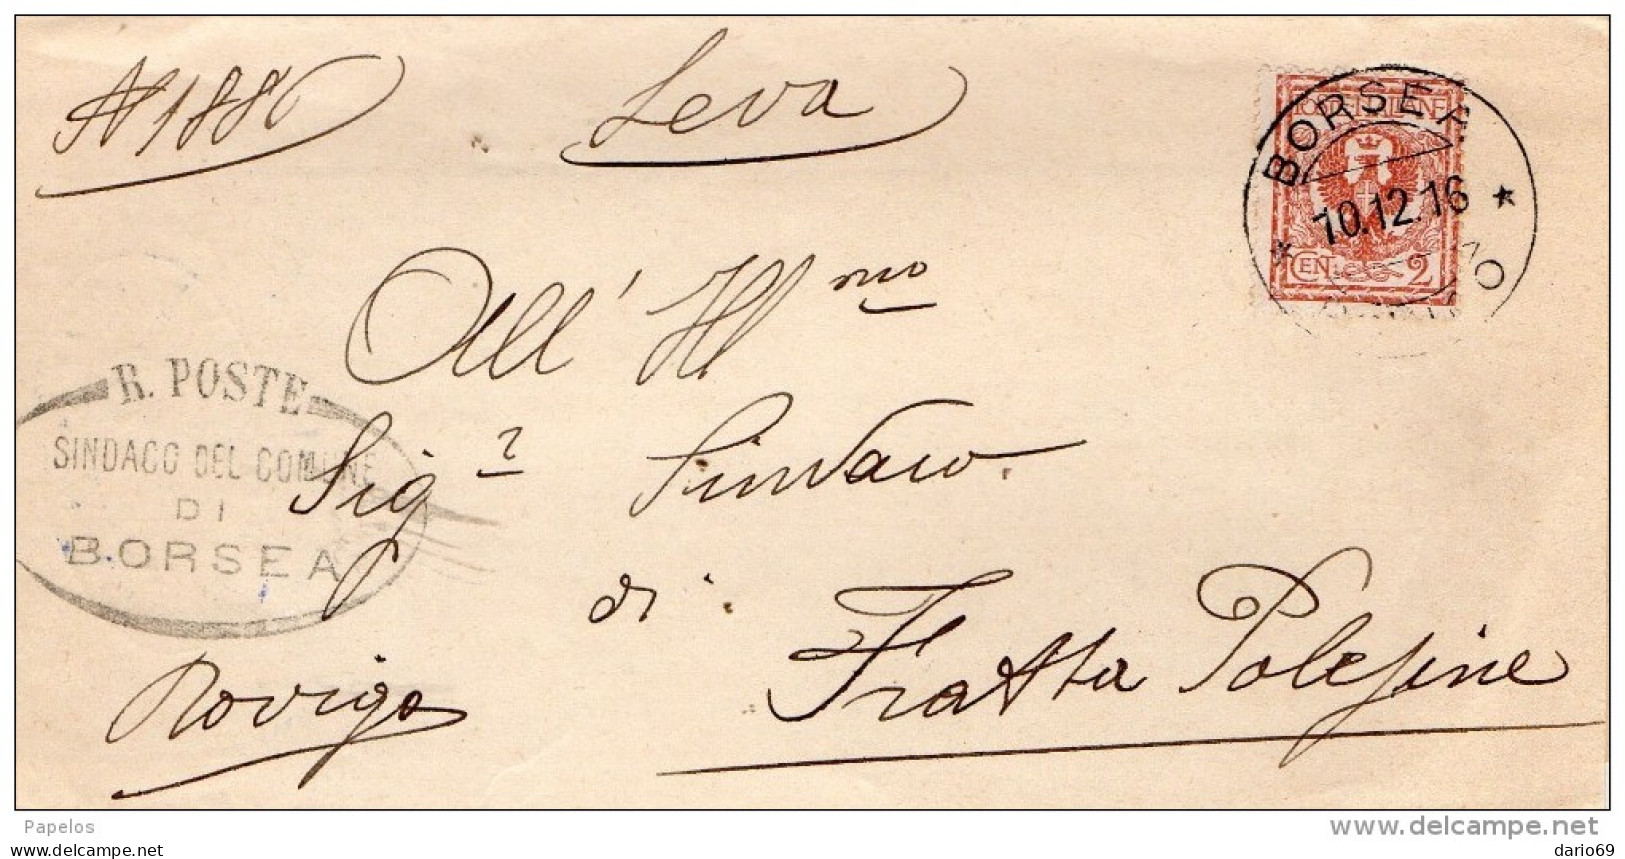 N 1886 Leva
BORSEA
POSTE ITALIANE
10.12.16
CEN 2
All' Ill mo
R. POSTE
SINDACO DEL COMUNE
DI
BORSEA
Sig.r Sindaco
di
Fratta Polesine
Rovigo
Papelos
www.delcampe.net
delcampe.com
dario69